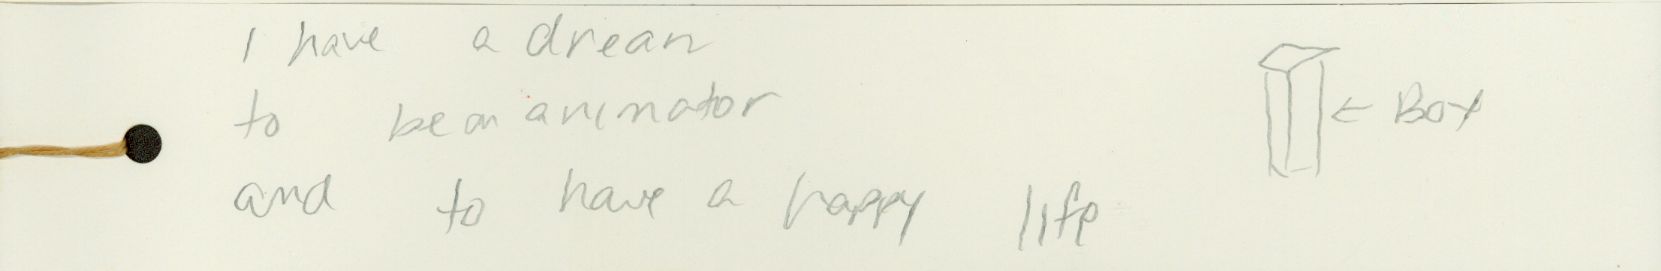 I have a drean
to be an animator
and to have a happy life
← Box